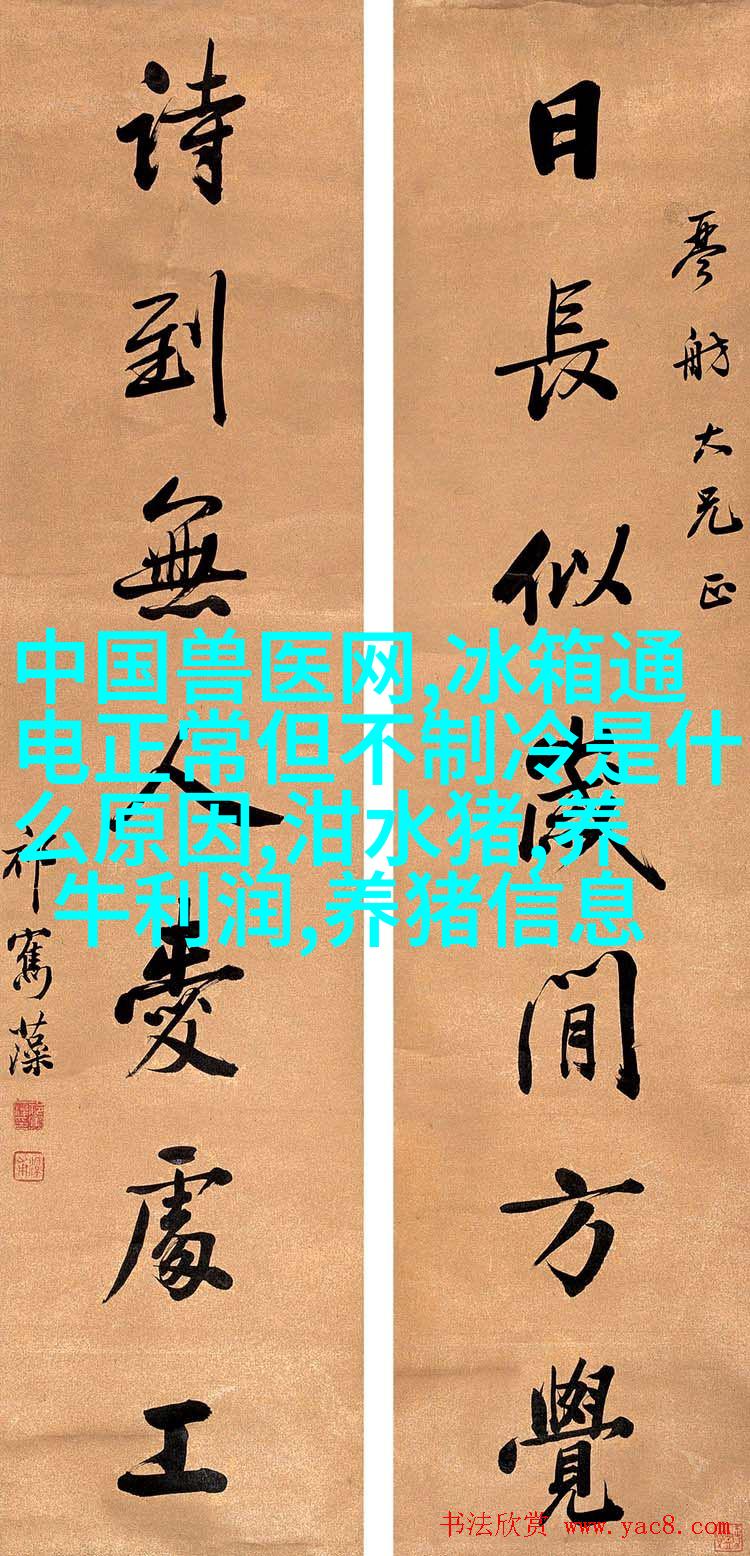 琴舫大兄正
日長似歲閒方覺
詩到無人愛處工
祁寯藻
中国兽医网,冰箱通
电正常但不制冷是什
么原因,泔水猪,养
牛利润,养猪信息
书法欣赏 www.yac8.com